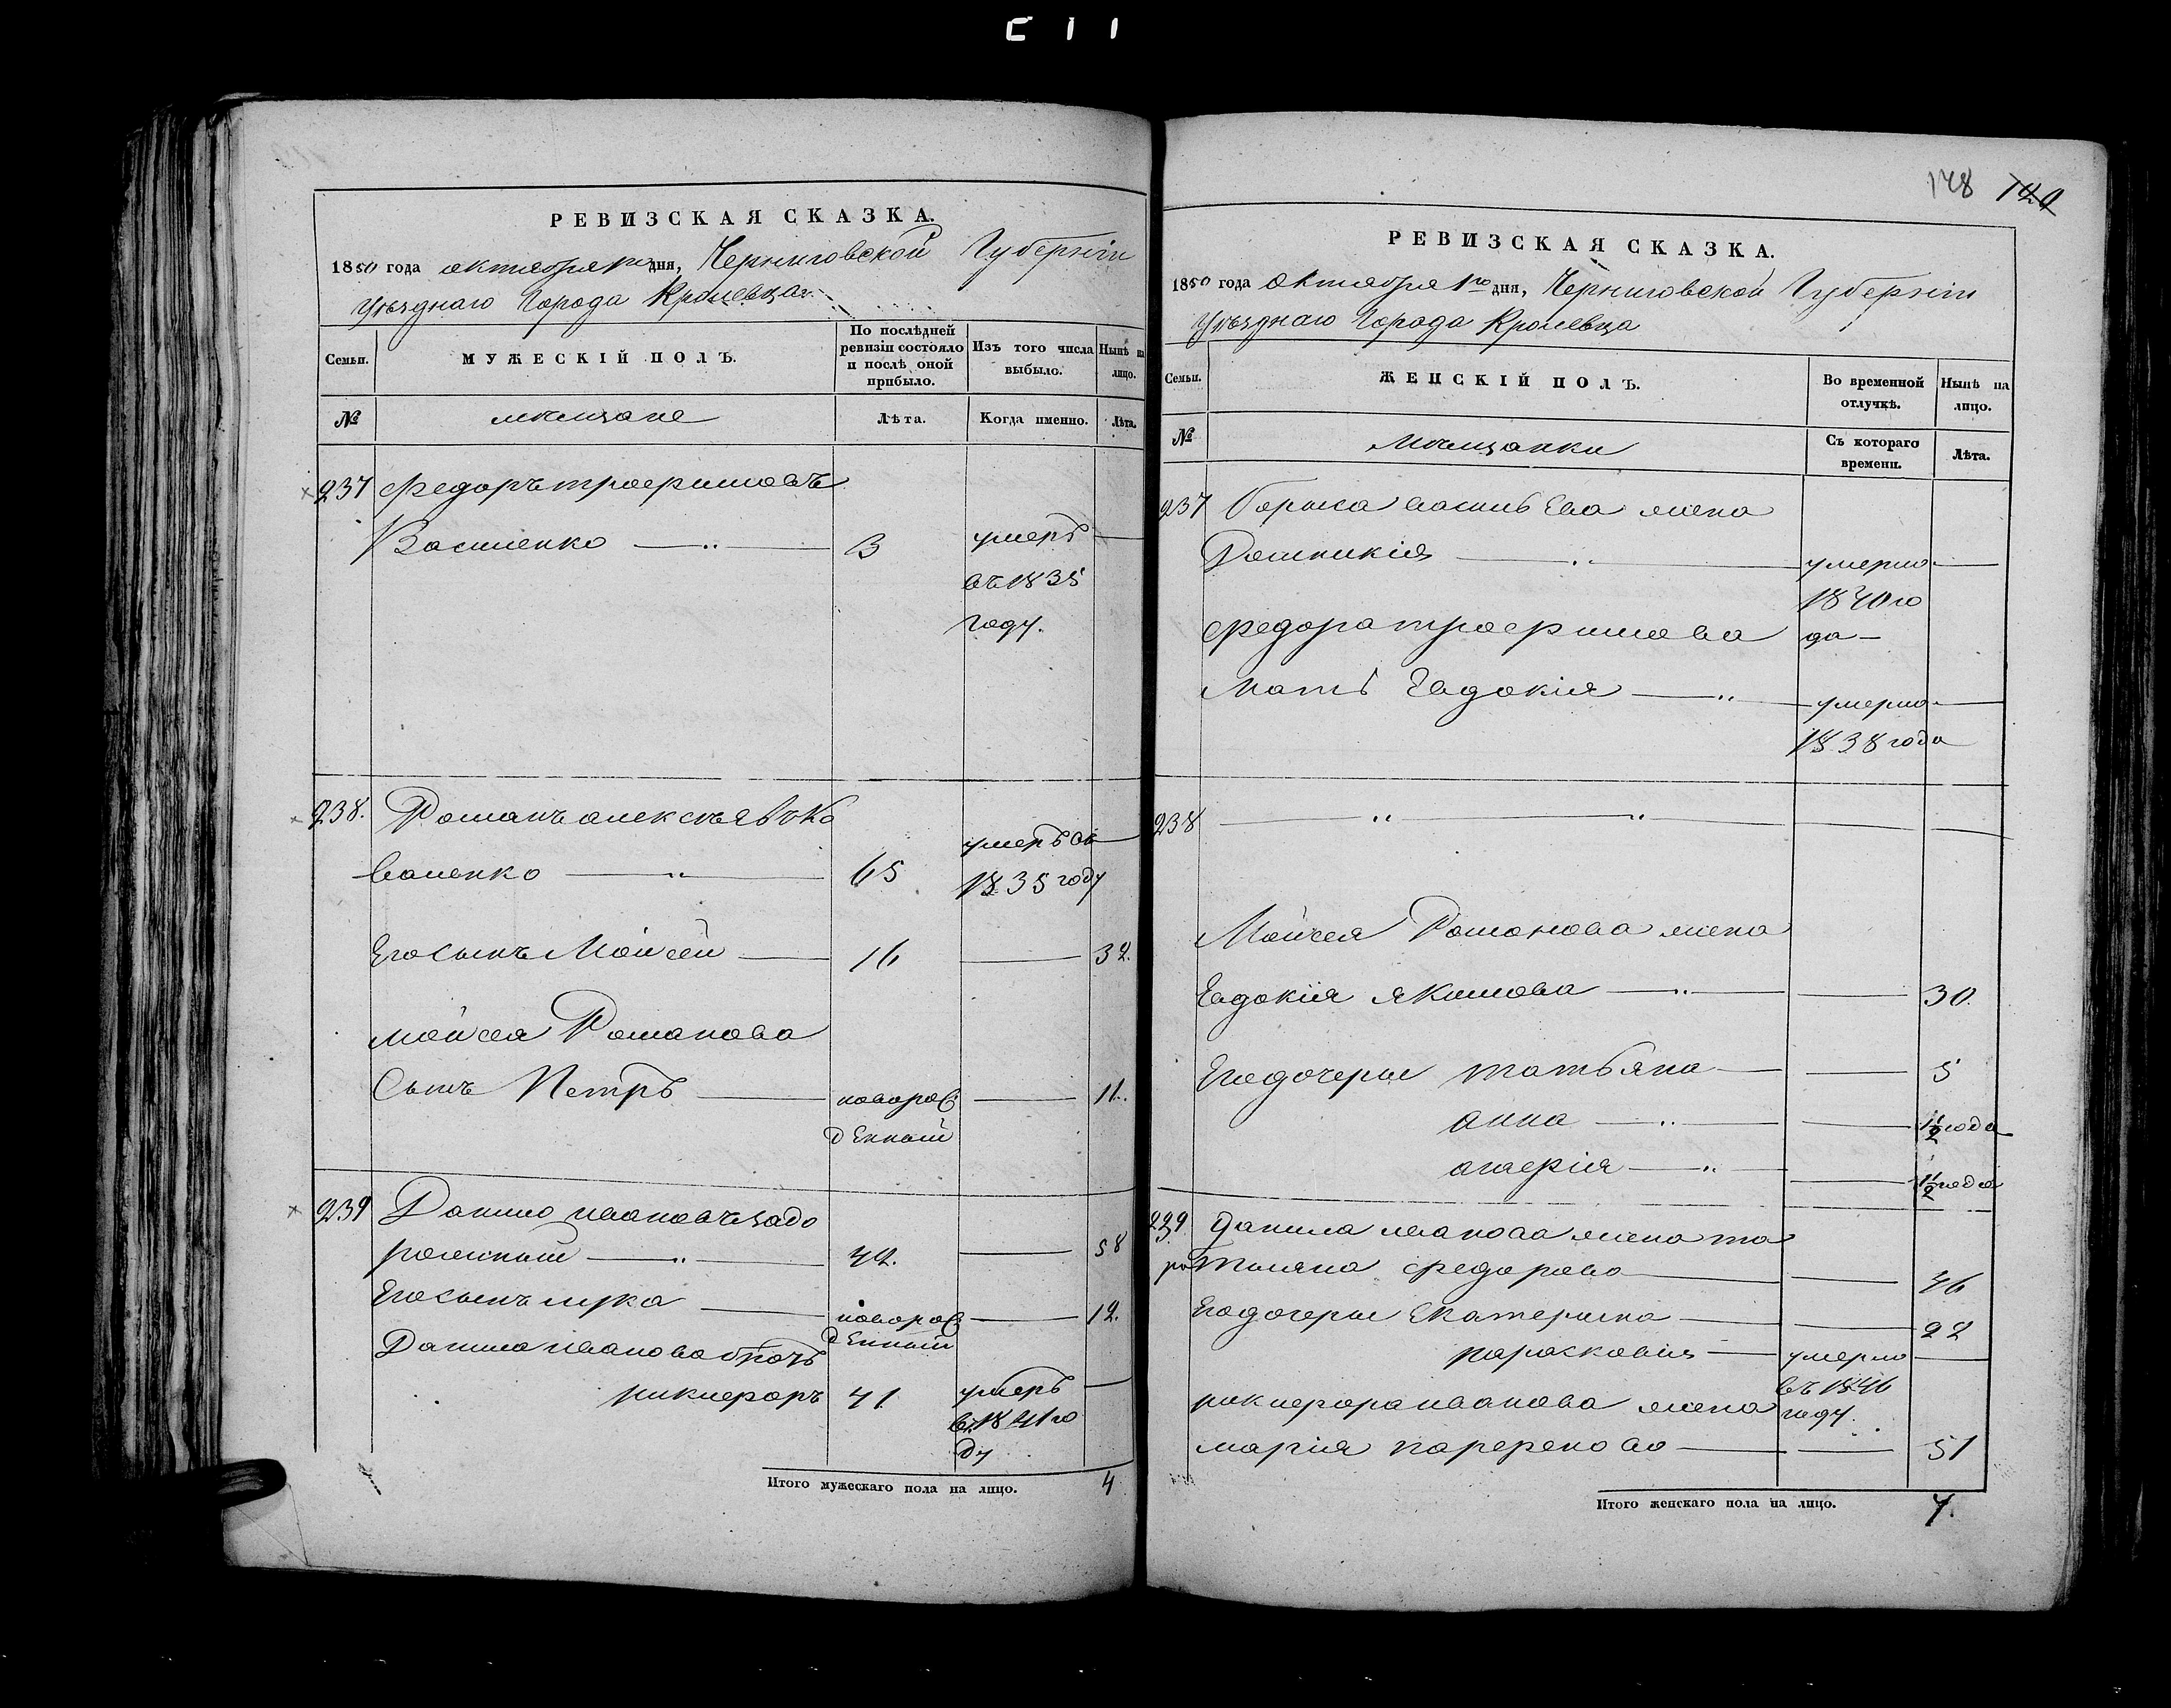 148 129
РЕВИЗСКАЯ СКАЗКА.
1850 года октября 1го дня, Черниговской Губерніи
Уѣзднаго Города Кролевца
Семьи. МУЖЕСКІЙ ПОЛЪ. По послѣдней ревизіи состояло и послѣ оной прибыло. Изъ того числа выбыло. Нынѣ на лицо.
№ мѣщане Лѣта. Когда именно. Лѣта.
237 Федоръ трофимовъ
Василенко 3 умеръ
въ 1835
году.
238. Романъ алексѣевъ Ко
валенко 65 умеръ въ
1835 году
Его сынъ Мойсей 16 32.
мойсея Романова
Сынъ Петръ новорож 11.
денный
239 Данило ивановъ задо
рожный 42. 58
Его сынъ лука новорож 12.
денный
Данила иванова братъ
никифоръ 41 умеръ
въ 1841 го
ду
Итого мужескаго пола на лицо. 4
РЕВИЗСКАЯ СКАЗКА.
1850 года Октября 1го дня, Черниговской Губерніи
Уѣзднаго Города Кролевца
Семьи. ЖЕНСКІЙ ПОЛЪ. Во временной отлучкѣ. Нынѣ на лицо.
№ Мѣщанки Съ котораго времени. Лѣта.
237 василь Ева жена
умерла
1840 го
Федора трофимова да
Мать Евдокія умерла
1838 года
238
Мойсея Романова жена
Евдокія Якимова 30.
Его дочери татьяна 5
анна 1½ года
1½ года
239 Данила иванова жена
федорова 46
Его дочери Екатерина 22
парасковія умерла
въ 1846
никифора иванова жена году.
марія 51
Итого женскаго пола на лицо. 7.